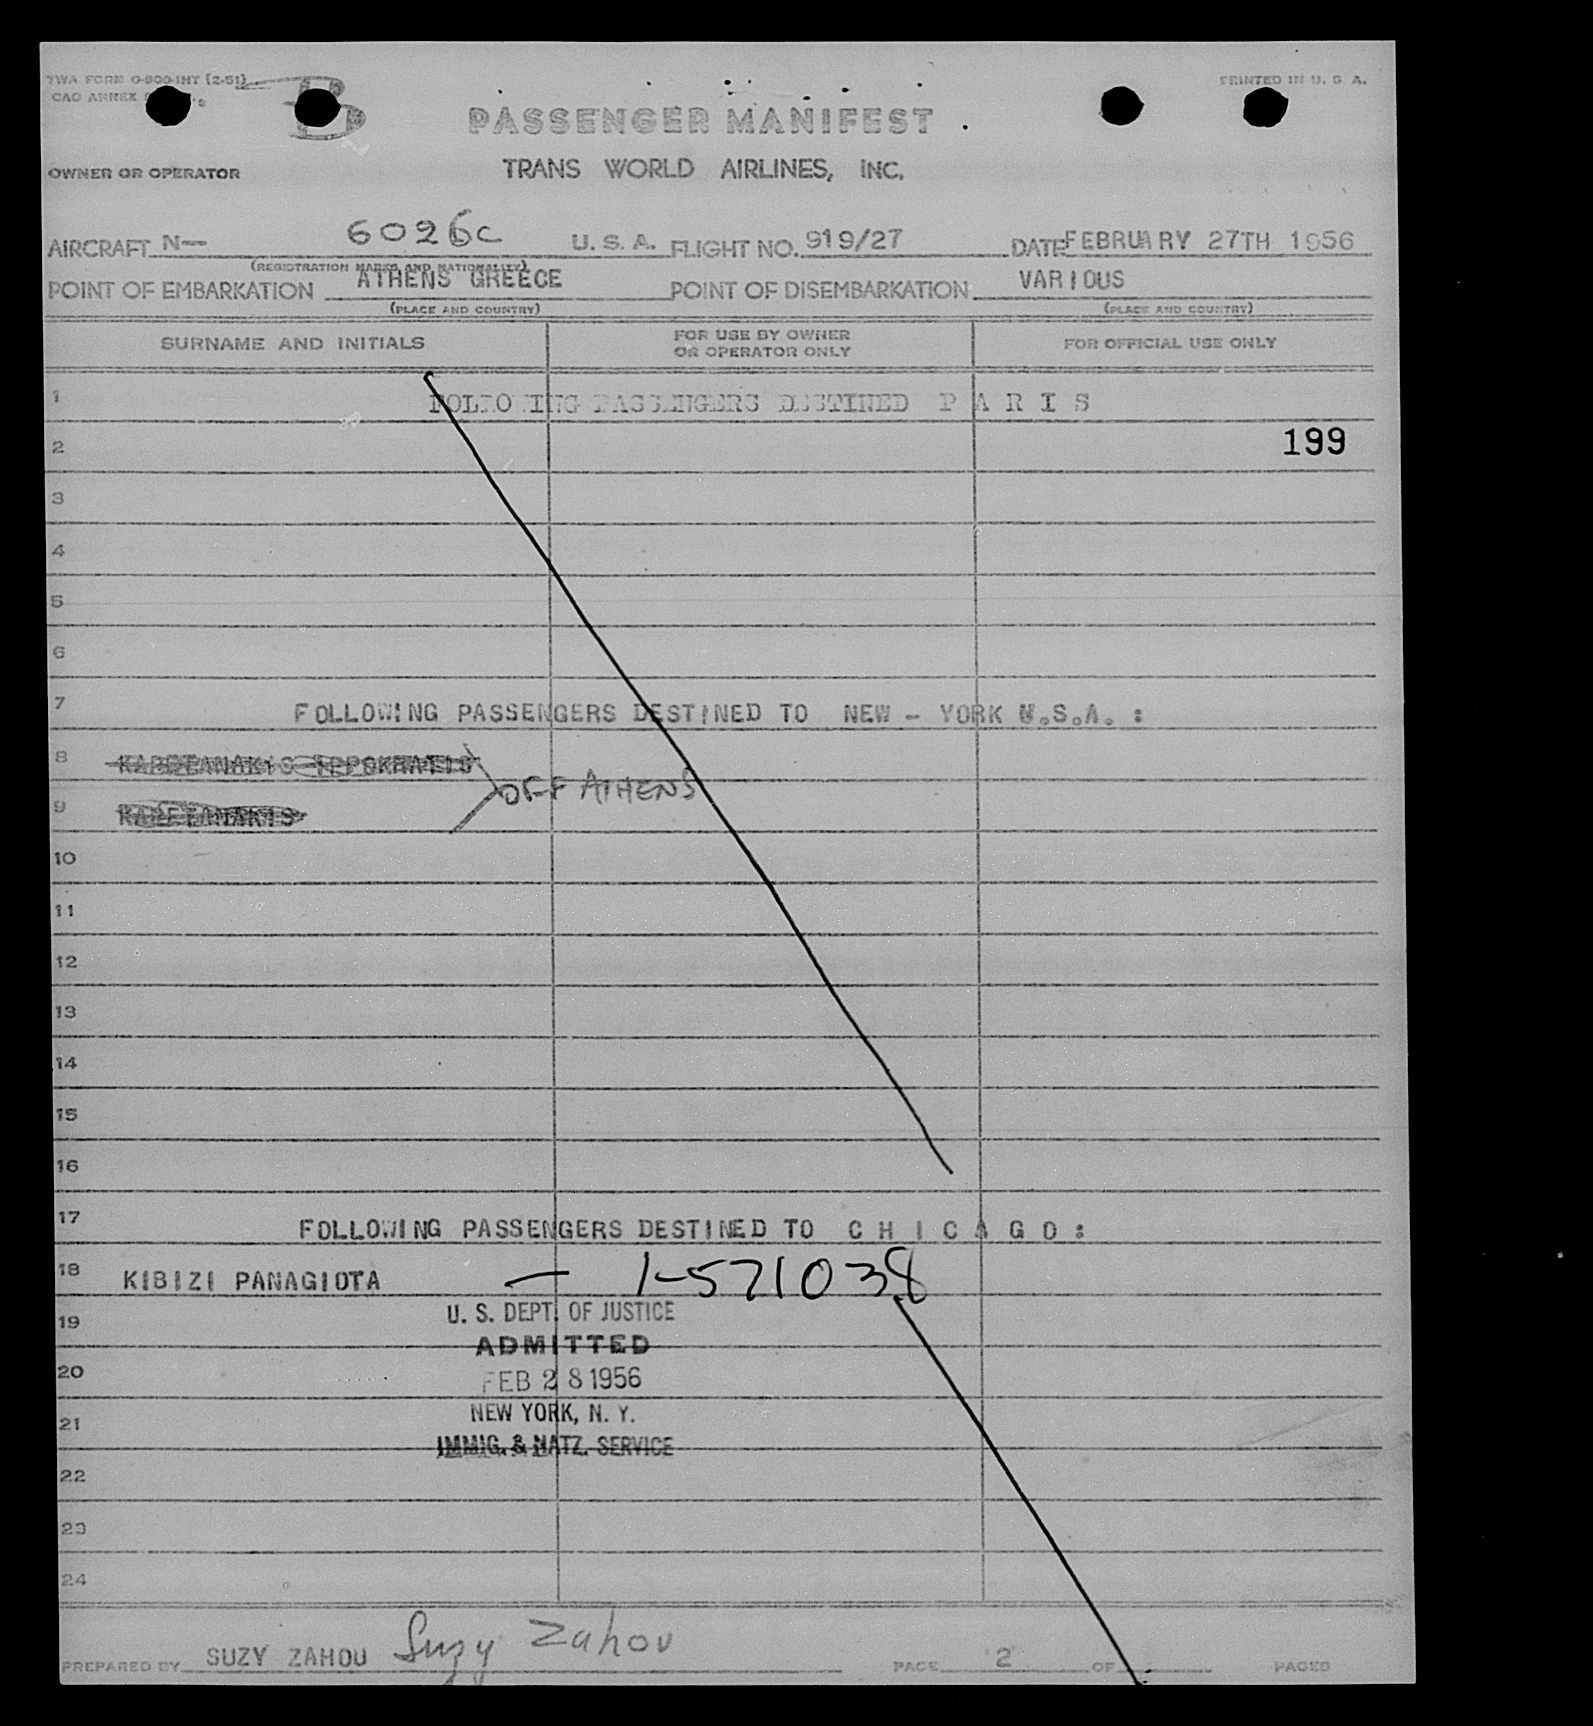 TWA FORM O-800-INT (2-51)
CAO ANNEX
PRINTED IN U. S. A.
B
PASSENGER MANIFEST
OWNER OR OPERATOR TRANS WORLD AIRLINES, INC.
AIRCRAFT N— 6026C U. S. A. FLIGHT NO. 919/27 DATE FEBRUARY 27TH 1956
(REGISTRATION MARKS AND NATIONALITY)
POINT OF EMBARKATION ATHENS GREECE POINT OF DISEMBARKATION VARIOUS
(PLACE AND COUNTRY) (PLACE AND COUNTRY)
SURNAME AND INITIALS FOR USE BY OWNER OR OPERATOR ONLY FOR OFFICIAL USE ONLY
1 FOLLOWING PASSENGERS DESTINED P A R I S
2 199
3
4
5
6
7 FOLLOWING PASSENGERS DESTINED TO NEW - YORK U.S.A. :
8
OFF ATHENS
9
10
11
12
13
14
15
16
17 FOLLOWING PASSENGERS DESTINED TO C H I C A G O :
18 KIBIZI PANAGIOTA — 1-571038
19 U. S. DEPT. OF JUSTICE
ADMITTED
20 FEB 28 1956
21 NEW YORK, N. Y.
IMMIG. & NATZ. SERVICE
22
23
24
PREPARED BY SUZY ZAHOU Suzy Zahou PAGE 2 OF PAGES